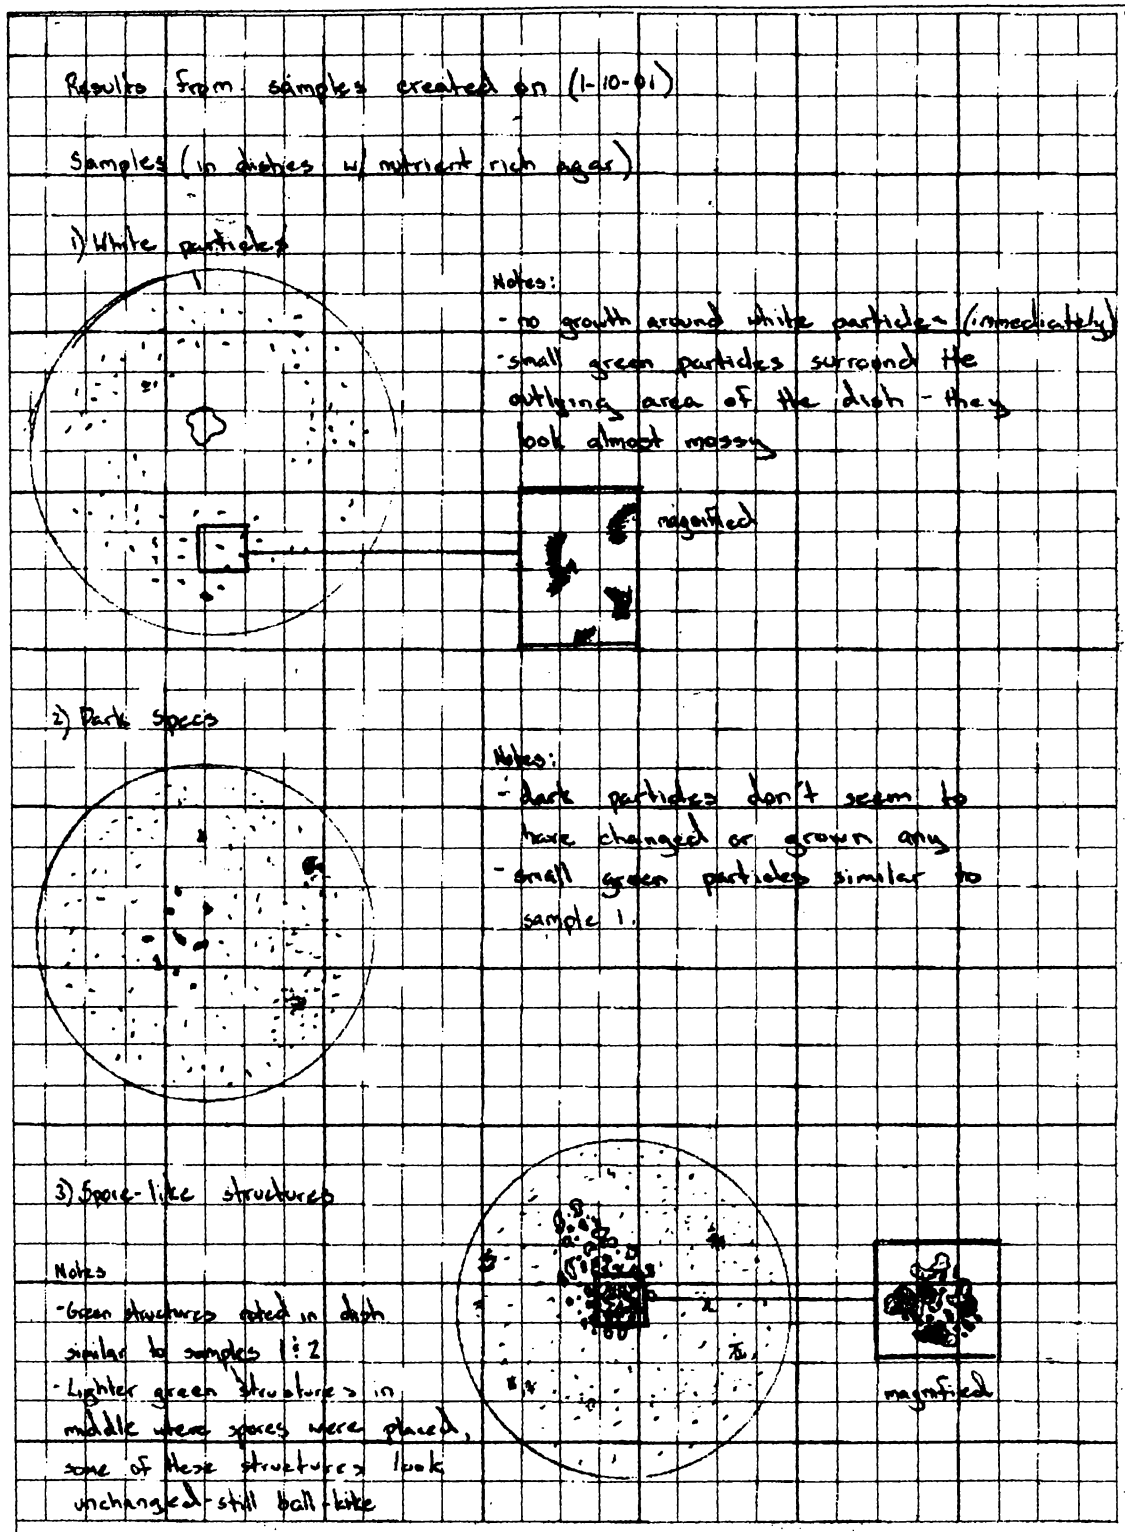 Results from samples created on (1-10-01)
Samples (in dishes w/ nutrient rich agar)
1) White particles
Notes:
- no growth around white particles (immediately)
- small green particles surround the
outlying area of the dish - they
look almost mossy
magnified
2) Dark Specs
Notes:
- dark particles don't seem to
have changed or grown any
- small green particles similar to
sample 1.
3) Spore-like structures
Notes
- Green structures noted in dish
similar to samples 1 & 2
- Lighter green structures in
middle where spores were placed,
some of these structures look
unchanged - still ball-like
magnified